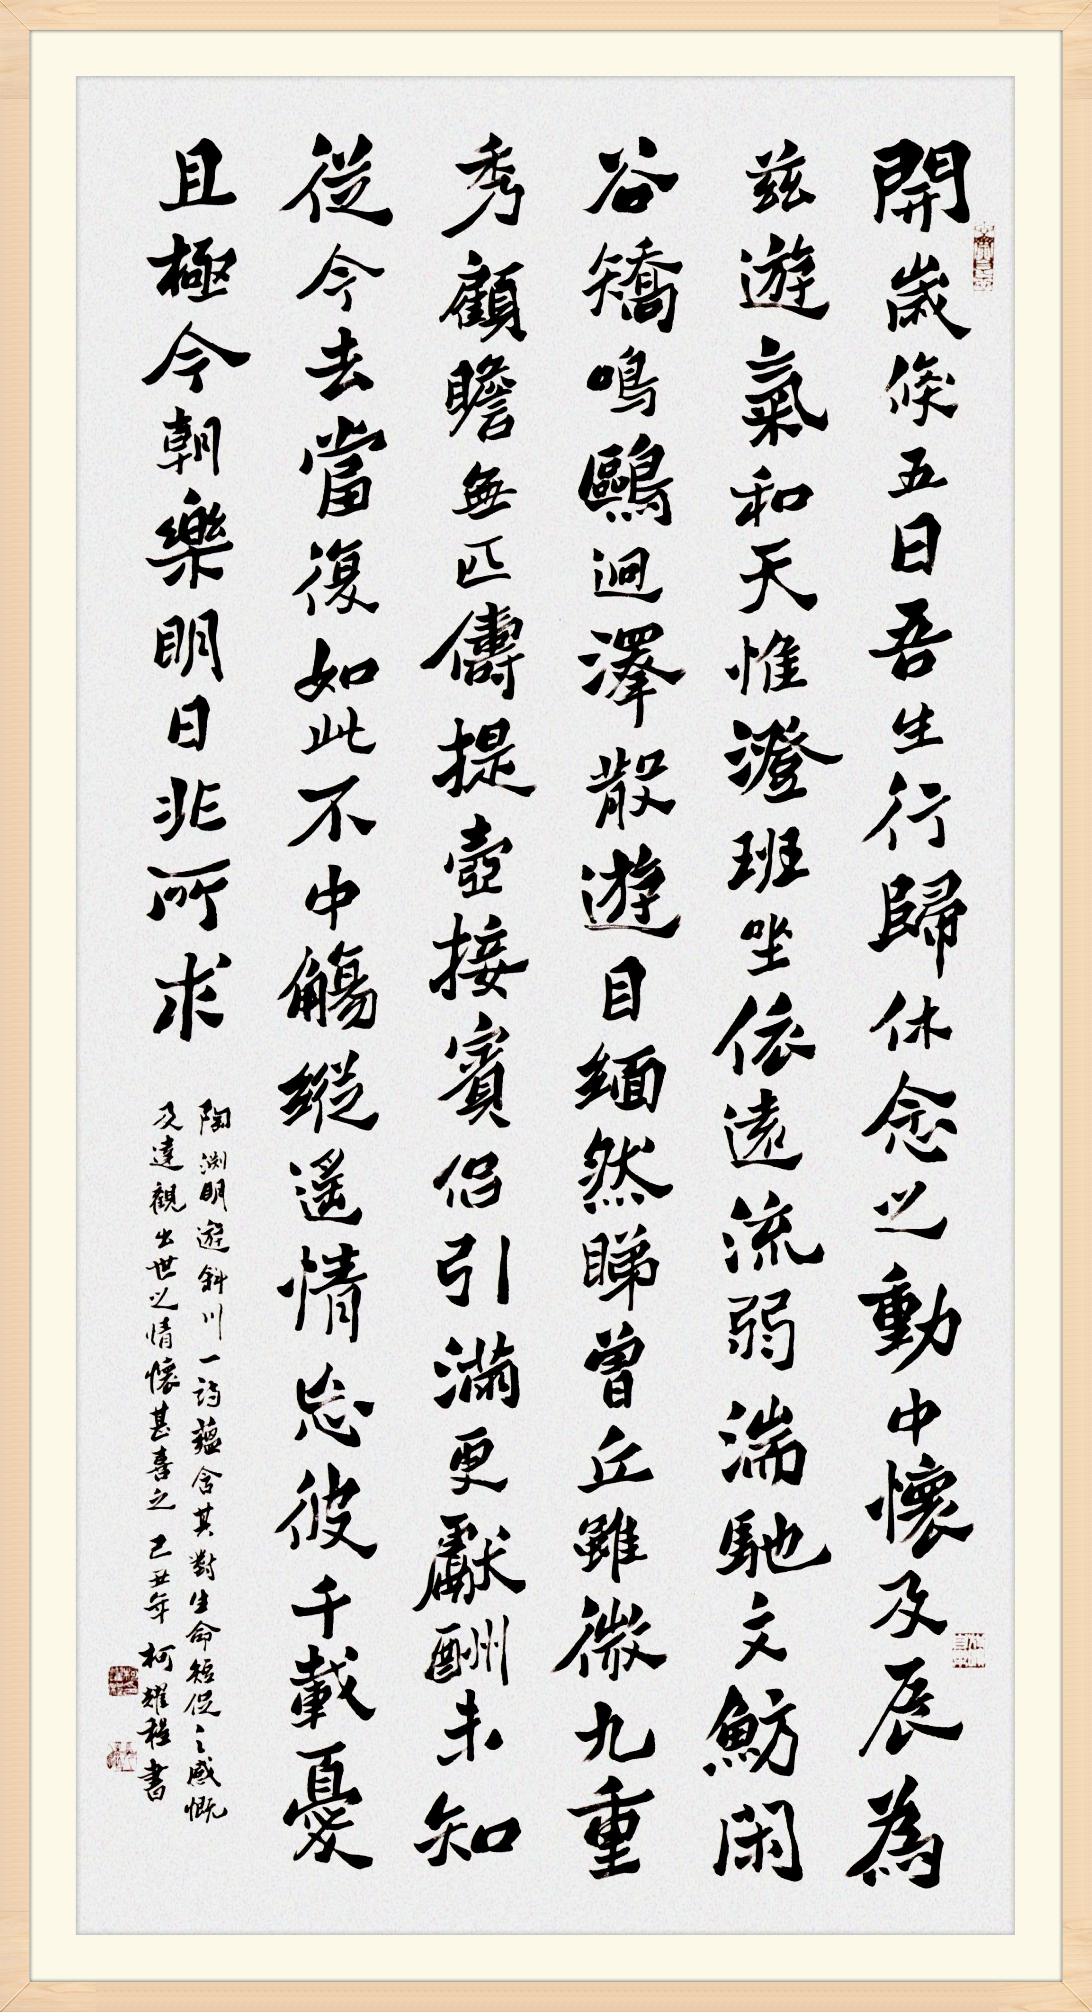 開歲倏五日吾生行歸休念之動中懷及辰為
茲遊氣和天惟澄班坐依遠流弱湍馳文魴閑
谷矯鳴鷗迥澤散遊目緬然睇曾丘雖微九重
秀顧瞻無匹儔提壺接賓侶引滿更獻酬未知
從今去當復如此不中觴縱遙情忘彼千載憂
且極今朝樂明日非所求
陶渊明遊斜川一詩蘊含其對生命短促之感慨
及達觀出世之情懷甚喜之 己丑年 柯耀程書